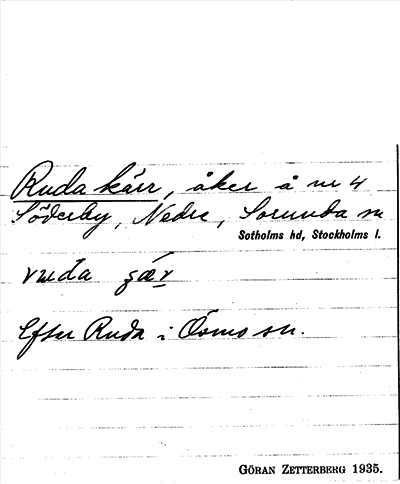 Ruda kärr, åker å nr 4
Söderby, Nedre, Sorunda sn
Sotholms hd, Stockholms l.
ruda
Efter Ruda i Ösmo sn.
GÖRAN ZETTERBERG 1935.